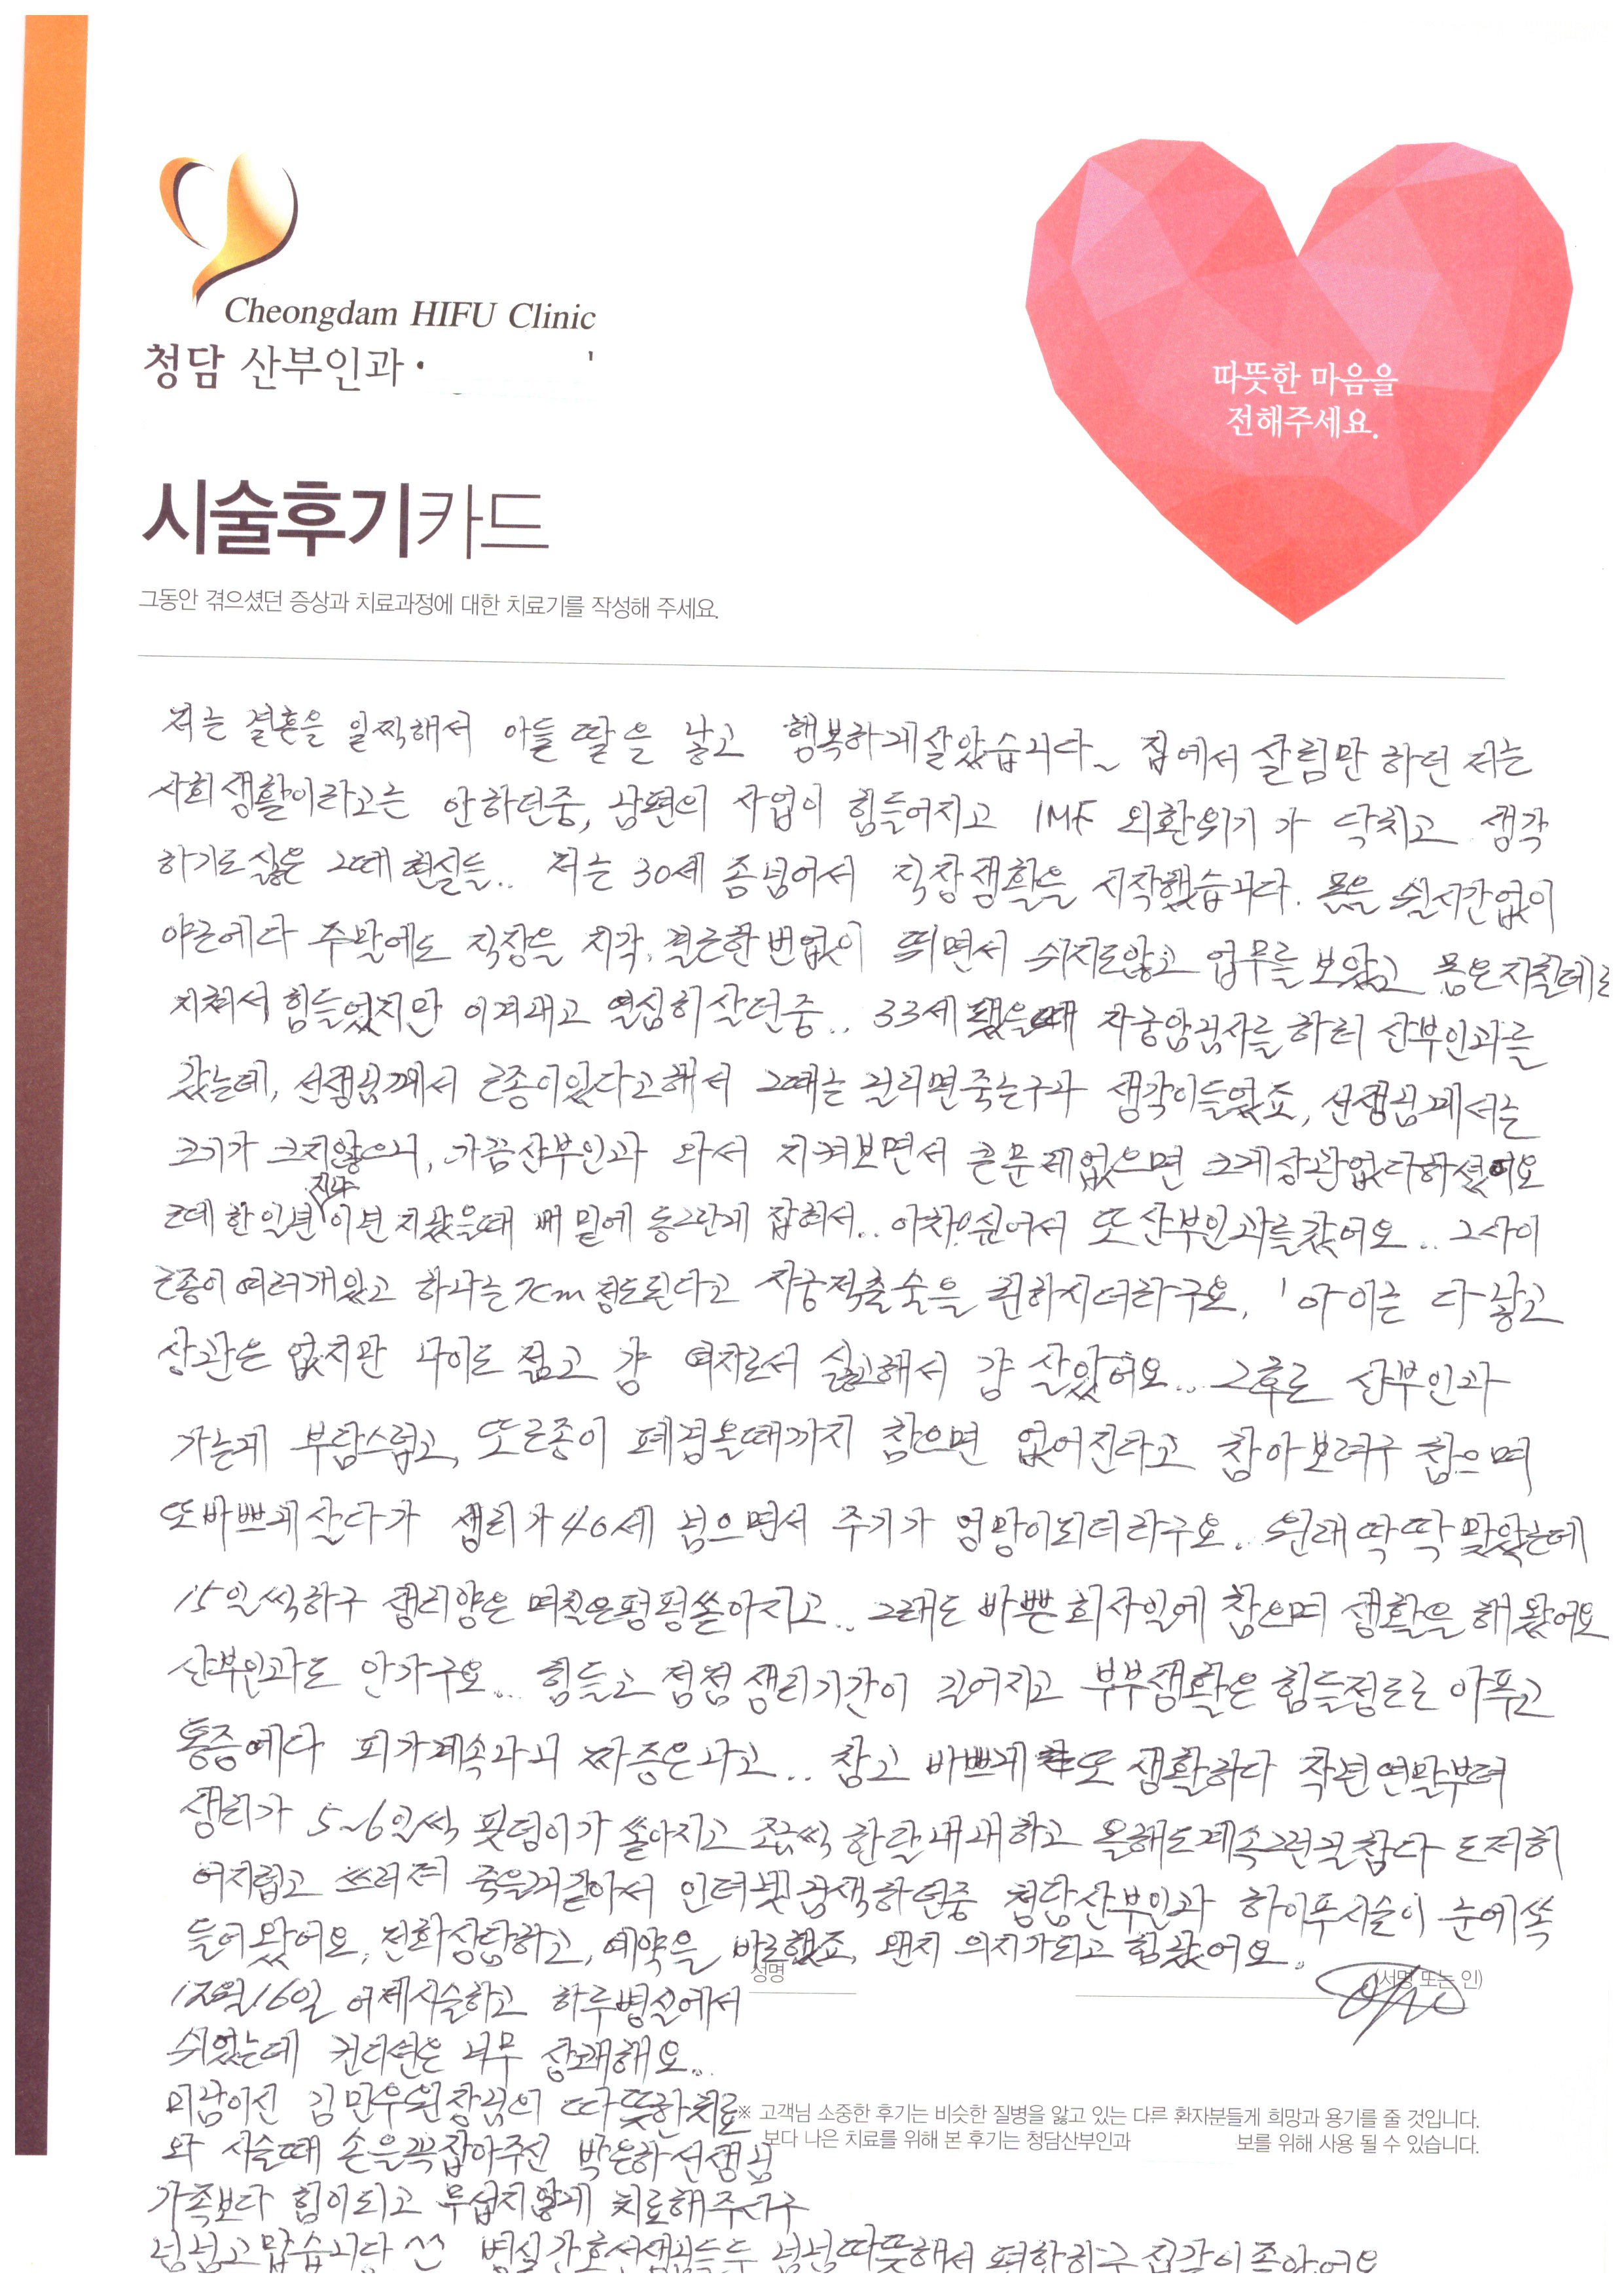 Cheongdam HIFU Clinic
청담 산부인과·
따뜻한 마음을
전해주세요.
시술후기카드
그동안 겪으셨던 증상과 치료과정에 대한 치료기를 작성해 주세요.
저는 결혼을 일찍해서 아들 딸을 낳고 행복하게살았습니다~ 집에서 살림만 하던 저는
사회생활이라고는 안하던중, 남편의 사업이 힘들어지고 IMF 외환위기가 닥치고 생각
하기도싫은 그때현실들.. 저는 30세 좀넘어서 직장생활을 시작했습니다. 몸을 쉴시간없이
야근에다 주말에도 직장을 지각, 결근한번없이 뛰면서 쉬지도않고 업무를 보았고 몸은지칠데로
지쳐서 힘들었지만 이겨내고 열심히살던중.. 33세 됐을때 자궁암검사를하러 산부인과를
갔는데, 선생님께서 근종이있다고해서 그때는 걸리면죽는구나 생각이들었죠, 선생님께서는
크기가 크지않으니, 가끔산부인과 와서 지켜보면서 큰문제없으면 크게상관없다하셨어요
근데 한일년지나 이년지났을때 배밑에 동그란게 잡혀서.. 아차!싶어서 또산부인과를갔어요.. 그사이
근종이 여러개있고 하나는 7cm정도된다고 자궁적출술을 권하시더라구요, 아이는 다낳고
상관은 없지만 나이도 젊고 걍 여자로서 싫고해서 걍 살았어요.. 그후론 산부인과
가는게 부담스럽고, 또근종이 폐경올때까지 참으면 없어진다고 참아보려구 참으며
또바쁘게살다가 생리가40세 넘으면서 주기가 엉망이되더라구요.. 원래딱딱맞았는데
15일씩하구 생리양은 며칠은펑펑쏟아지고.. 그래도 바쁜회사일에 참으며 생활을 해왔어요
산부인과도 안가구요.. 힘들고 점점생리기간이 길어지고 부부생활은 힘들정도로 아푸고
통증에다 피가계속나니 짜증은나고.. 참고 바쁘게 또 생활하다 작년연말부터
생리가 5~6일씩 핏덩이가 쏟아지고 조금씩 한달내내하고 올해도계속그런걸참다 도저히
어지럽고 쓰러져 죽을거같아서 인터넷검색하던중 청담산부인과 하이푸시술이 눈에쏙
들어왔어요, 전화상담하고, 예약을 바로했죠, 왠지 의지가되고 힘났어요.
성명
(서명 또는 인)
12월16일 어제시술하고 하루병실에서
쉬었는데 컨디션은 너무 상쾌해요..
미남이신 김민우원장님의 따뜻한치료
와 시술때 손을꼭잡아주신 박은하선생님
가족보다 힘이되고 무섭지않게 치료해주셔구
넘넘고맙습니다 ^^ 병실간호사샘님들두 넘넘따뜻해서 편안하구 집같이좋았어요
※ 고객님 소중한 후기는 비슷한 질병을 앓고 있는 다른 환자분들게 희망과 용기를 줄 것입니다.
보다 나은 치료를 위해 본 후기는 청담산부인과 보를 위해 사용 될 수 있습니다.